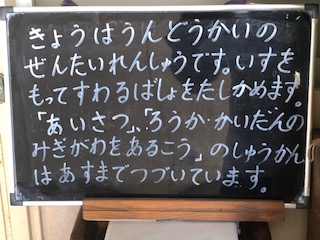 きょうはうんどうかいの
ぜんたいれんしゅうです。いすを
もってすわるばしょをたしかめます。
「あいさつ」、「ろうか・かいだんの
みぎがわをあるこう」のしゅうかん
はあすまでつづいています。